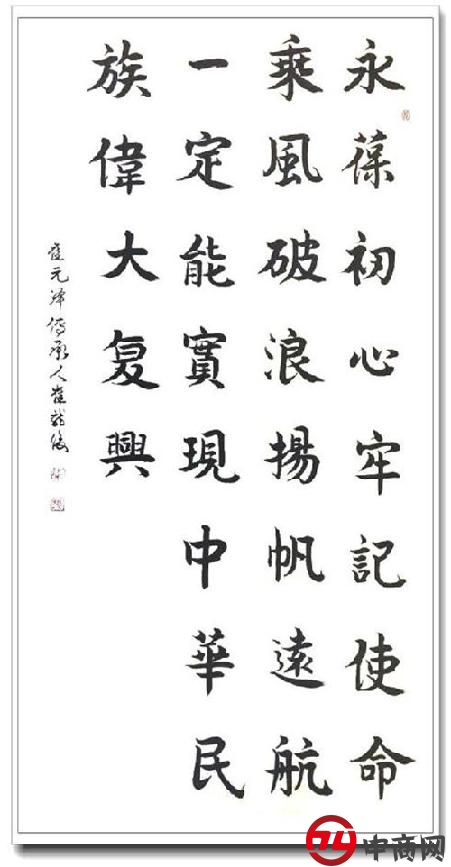 永葆初心牢記使命
乘風破浪揚帆遠航
一定能實現中華民
族偉大复興
崔元峰傳承人崔龍海
中商网